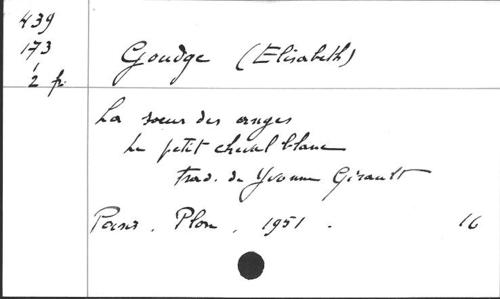 439
173
1
2 fr.
Goudge (Elisabeth)
La soeur des anges
Le petit cheval blanc
trad. de Yvonne Girault
Paris. Plon, 1951. 16